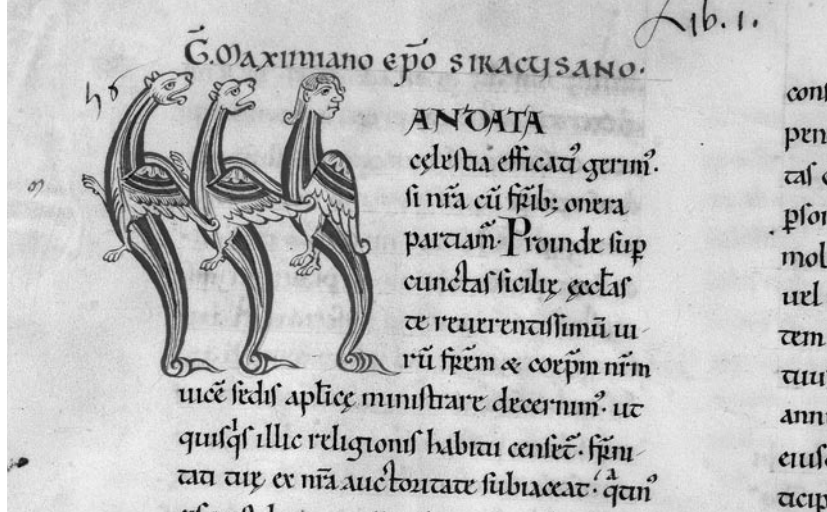 Lib. I.
G̅. MAXIMIANO EP̅O SIRACUSANO.
ho
ANDATA
cęlestia efficati᾿ gerim᾿.
si nr̅a cū fr̅ib; onera
partiam᾿. Proinde sup̱
cunctas sicilię ęcc̅las
te reuerentissimū ui
rū fr̅em & coep̅m nr̅m
uicē sedis ap̅licę ministrare decernim᾿. ut
quisqͥs illic religionis habitu censet̅. fr̅ni
tati tuę ex nr̅a auctoritate subiaceat. q̅tin᾿
cons
pen
tas
p̱son
mol
uel
tem
tuu
ann
eius
ticip